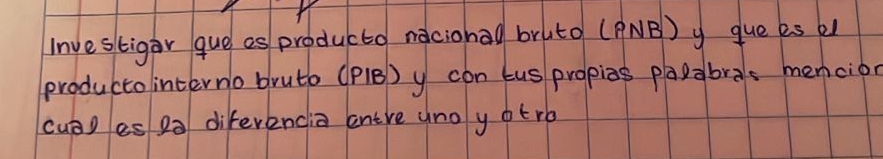 Investigar que es producto nacional bruto (PNB) y que es el
producto interno bruto (PIB) y con tus propias palabras mencion
cual es la diferencia entre uno y otro